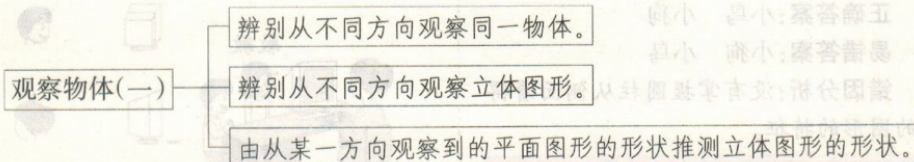 辨别从不同方向观察同一物体。
观察物体(一)
辨别从不同方向观察立体图形。
由从某一方向观察到的平面图形的形状推测立体图形的形状。